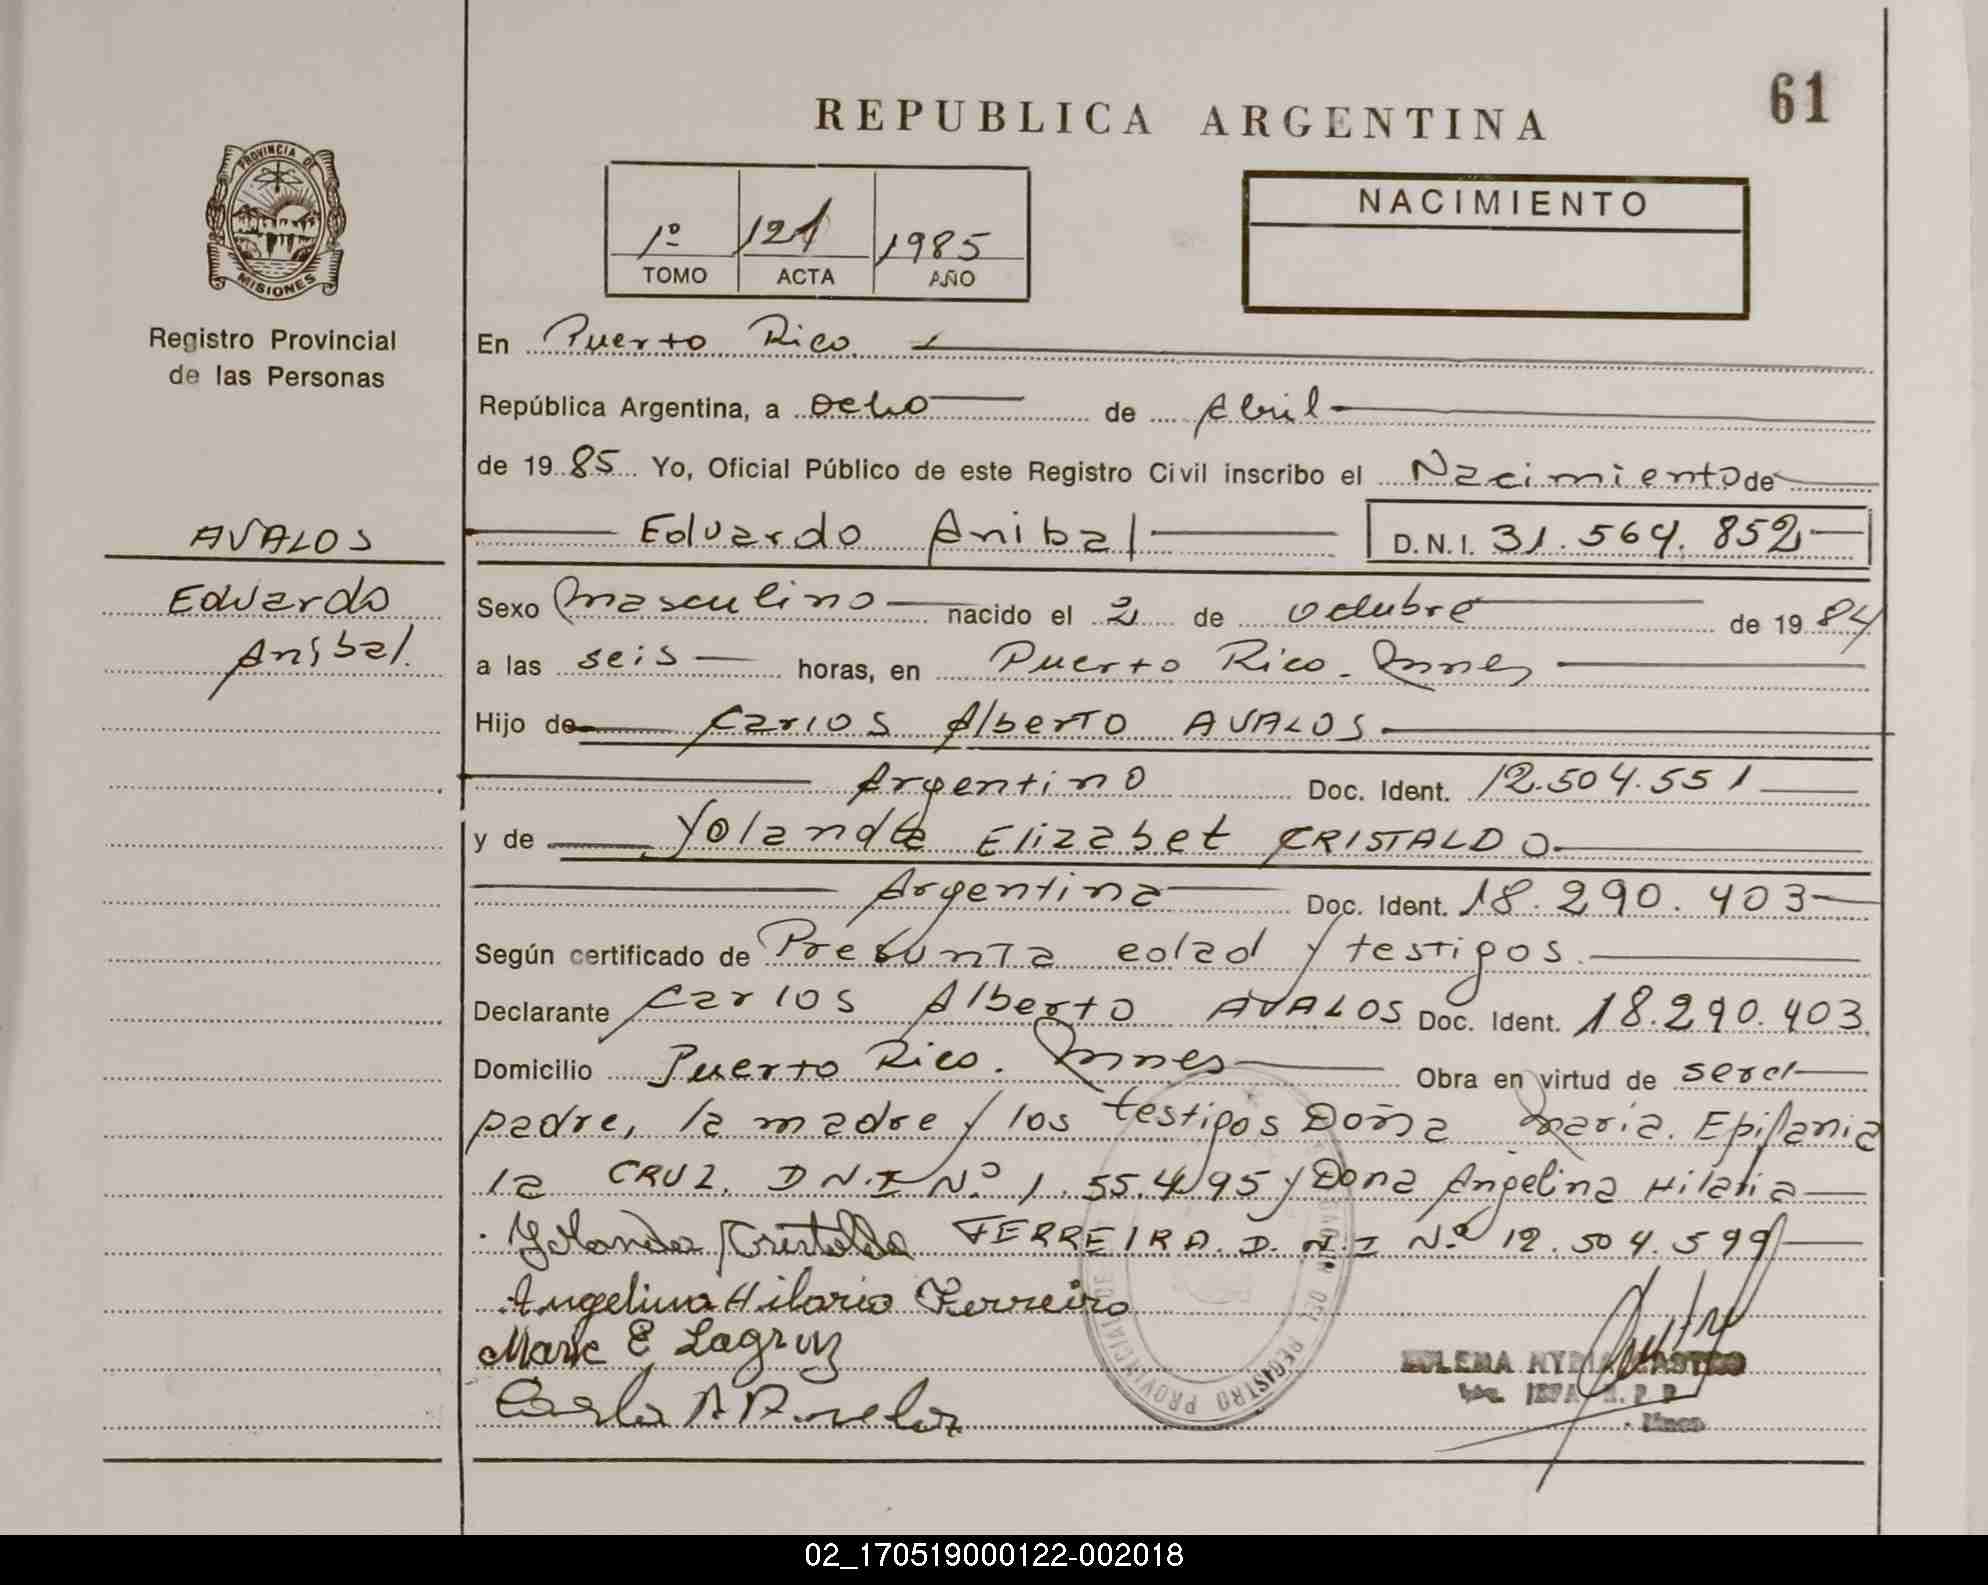 61
REPUBLICA ARGENTINA
PROVINCIA DE
MISIONES
Registro Provincial
de las Personas
1º 121 1985
TOMO ACTA AÑO
NACIMIENTO
En Puerto Rico
República Argentina, a ocho de Abril
de 1985 Yo, Oficial Público de este Registro Civil inscribo el Nacimiento de
AVALOS
Eduardo Anibal D.N.I. 31.564.852
Eduardo
Anibal.
Sexo masculino nacido el 2 de octubre de 1984
a las seis horas, en Puerto Rico. Mnes
Hijo de Carlos Alberto AVALOS
Argentino Doc. Ident. 12.504.551
y de Yolanda Elizabet CRISTALDO
Argentina Doc. Ident. 18.290.403
Según certificado de Presunta edad y testigos.
Declarante Carlos Alberto AVALOS Doc. Ident. 18.290.403
Domicilio Puerto Rico. Mnes Obra en virtud de ser el
padre, la madre y los testigos Doña Maria Epifania
la CRUZ. D N.I Nº 1.55.495 y Dona Angelina Hilaria
Yolanda Cristaldo FERREIRA. D.N.I Nº 12.504.599
Angelina Hilaria Ferreira
E Lagruz
REGISTRO PROVINCIAL DE
02_170519000122-002018